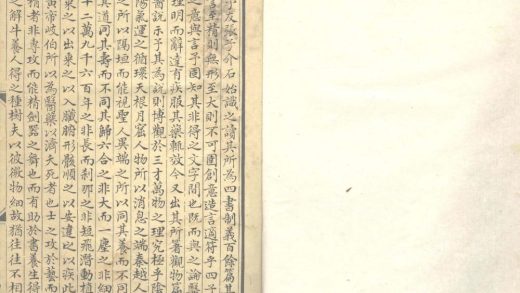 子友張子介石始識之讀其所為四書制義百餘篇其
言至精則無形至大則不可圍創意造言適符乎四子
之意與言予固知其非得之文字間也既而與之論醫
理明而辭達有疾服其藥輒效今又出其所著觀物篇
醫說示予其為說則博觀於三才萬物之理究極乎陰
陽氣運之循環天根月窟人物所以消息之端秦越人
之所以陽垣而能視聖人異端之所以同其養而不同
其道同其壽而不同其歸六合之非大而一塵之非細
十二萬九千六百年之非長而剎那之非短飛潛動植
之以出東之以入臟腑形骸順之以安違之以疾此
黃帝岐伯所以為醫藥以濟夭死者也士之攻於藝而
精者非專攻而能精劍器之舞也而有助於書養生得
之解牛養人得之種樹夫以彼微物細故猶往往不相